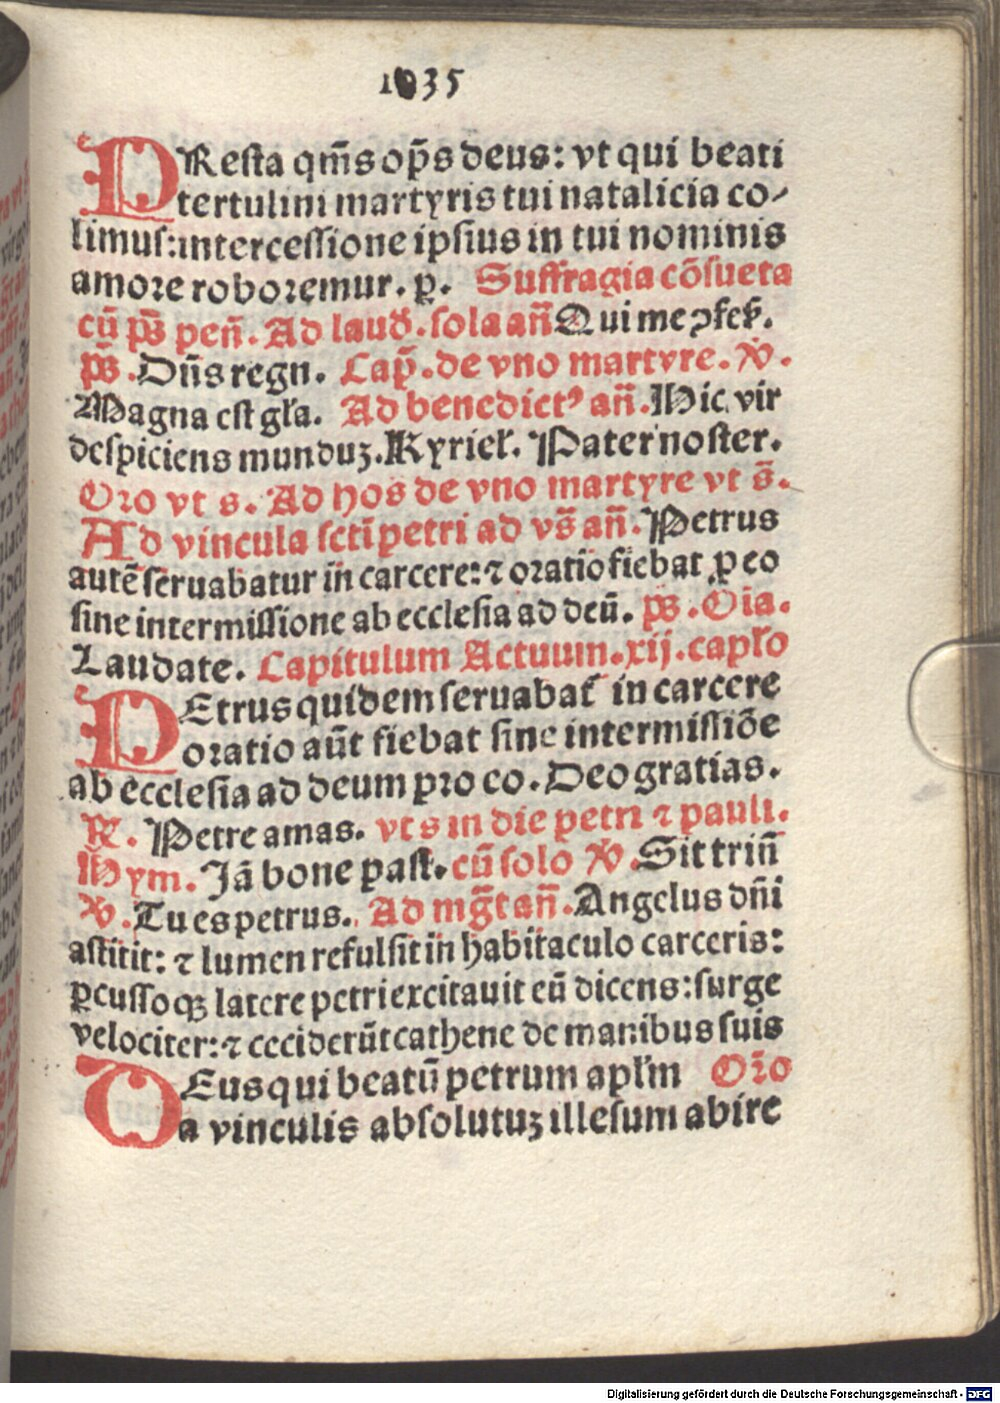 1035
PResta qm̄s op̄s deus: vt qui beati
tertulini martyris tui natalicia co⸗
limus: intercessione ipsius in tui nominis
amore roboremur. ꝑ. Suffragia cōsueta
cū p̄s pen̄. Ad laud̄. sola an̄ Qui me ꝯfeſ̄.
p̄s. Dn̄s regn. Cap̄. de vno martyre. ꝟ.
Magna est gl̄a. Ad benedictꝰ an̄. Hic vir
despiciens munduꝫ. Kyriel̄. Pater noster.
Oro vt s. Ad hos de vno martyre vt s̄.
Ad vincula scti̅ petri ad vs̄ an̄. Petrus
autē seruabatur in carcere: ⁊ oratio fiebat ꝓ eo
sine intermissione ab ecclesia ad deū. p̄s. Oīa.
Laudate. Capitulum Actuum. xij. capl̄o
PEtrus quidem seruabat̄ in carcere
oratio aūt fiebat sine intermissiōe
ab ecclesia ad deum pro eo. Deo gratias.
℟. Petre amas. vt s in die petri ⁊ pauli.
Hym. Jā bone past̄. cū solo ꝟ. Sit trin̄
ꝟ. Tu es petrus. Ad mg̅t an̄. Angelus dn̄i
astitit: ⁊ lumen refulsit in habitaculo carceris:
ꝑcussoqꝫ latere petri excitauit eū dicens: surge
velociter: ⁊ ceciderūt cathene de manibus suis
DEus qui beatū petrum apl̄m Or̄o
a vinculis absolutuꝫ illesum abire
Digitalisierung gefördert durch die Deutsche Forschungsgemeinschaft - DFG